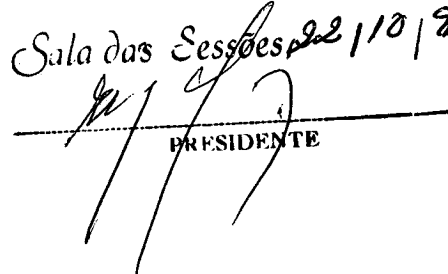 Sala das Sessões, 22/10/8
PRESIDENTE